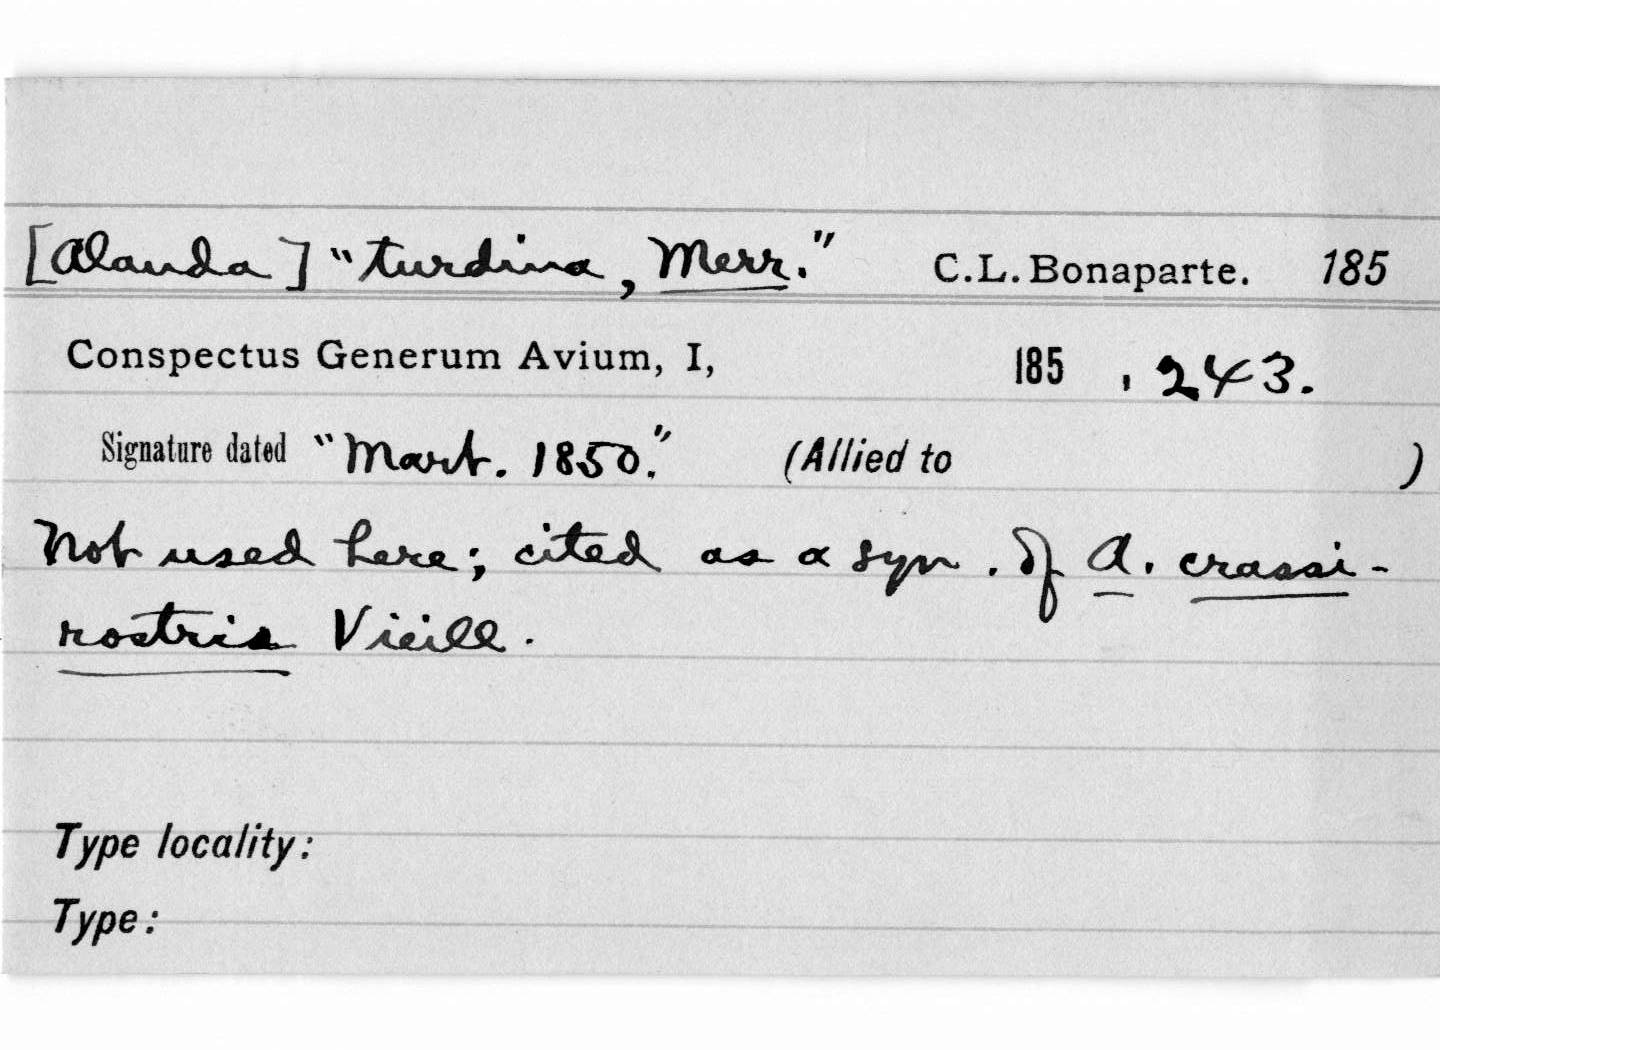 [Alauda] "turdina, Merr." C.L. Bonaparte. 185
Conspectus Generum Avium, I, 185 , 243.
Signature dated "Mart. 1850." (Allied to )
Not used here; cited as a syn. of A. crassi-
rostris Vieill.
Type locality:
Type: